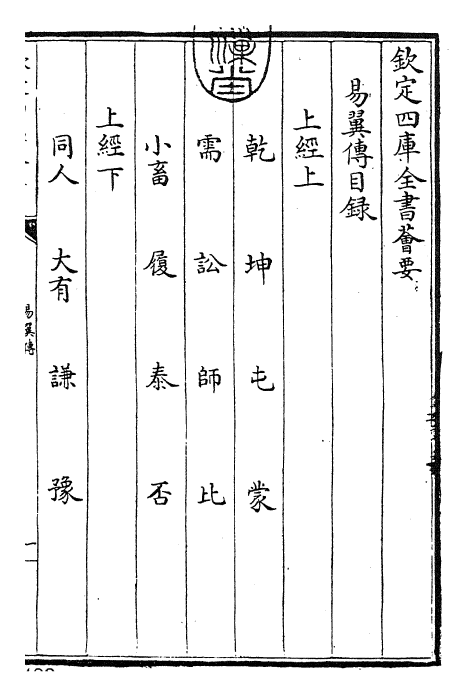 欽定四庫全書薈要
易翼傳目録
上經上
乾 坤 屯 蒙
需 訟 師 比
小畜 履 泰 否
上經下
同人 大有 謙 豫
易翼傳
一